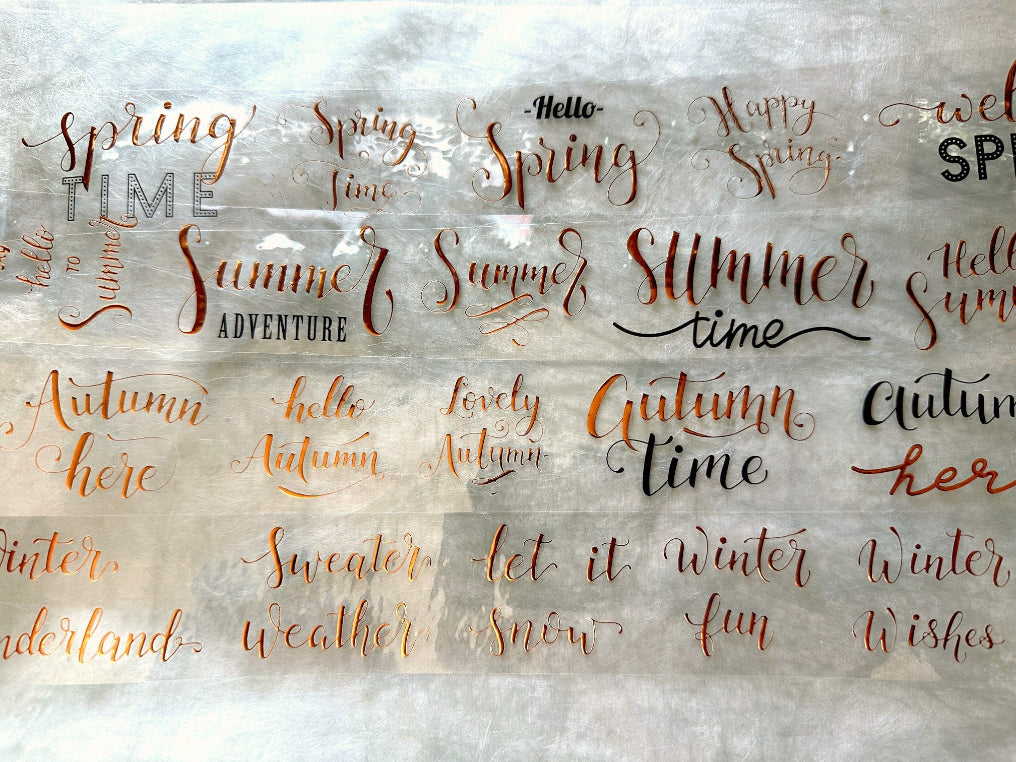 spring
TIME
Spring
Time
-Hello-
Spring
Happy
Spring
hello
TO
Summer
Summer
ADVENTURE
Summer
Summer
time
Hello
Autumn
here
hello
Autumn
Lovely
Autumn
Autumn
Time
Winter
nderland
Sweater
Weather
let it
Snow
Winter
fun
Winter
Wishes